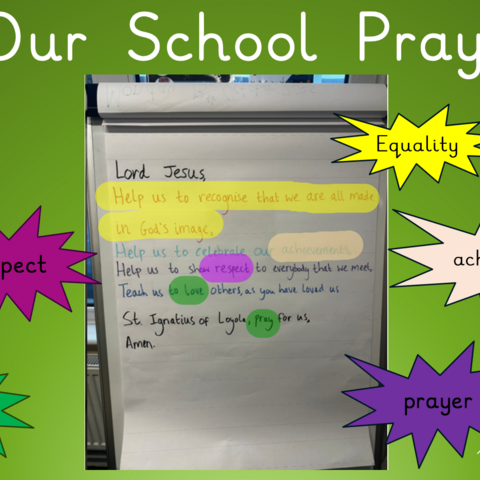 Our School Pray
Equality
Lord Jesus,
Help us to recognise that we are all made
in God's image,
Help us to celebrate our achievements,
Help us to show respect to everybody that we meet,
Teach us to love others, as you have loved us
St. Ignatius of Loyola, pray for us,
Amen.
pect
ach
prayer